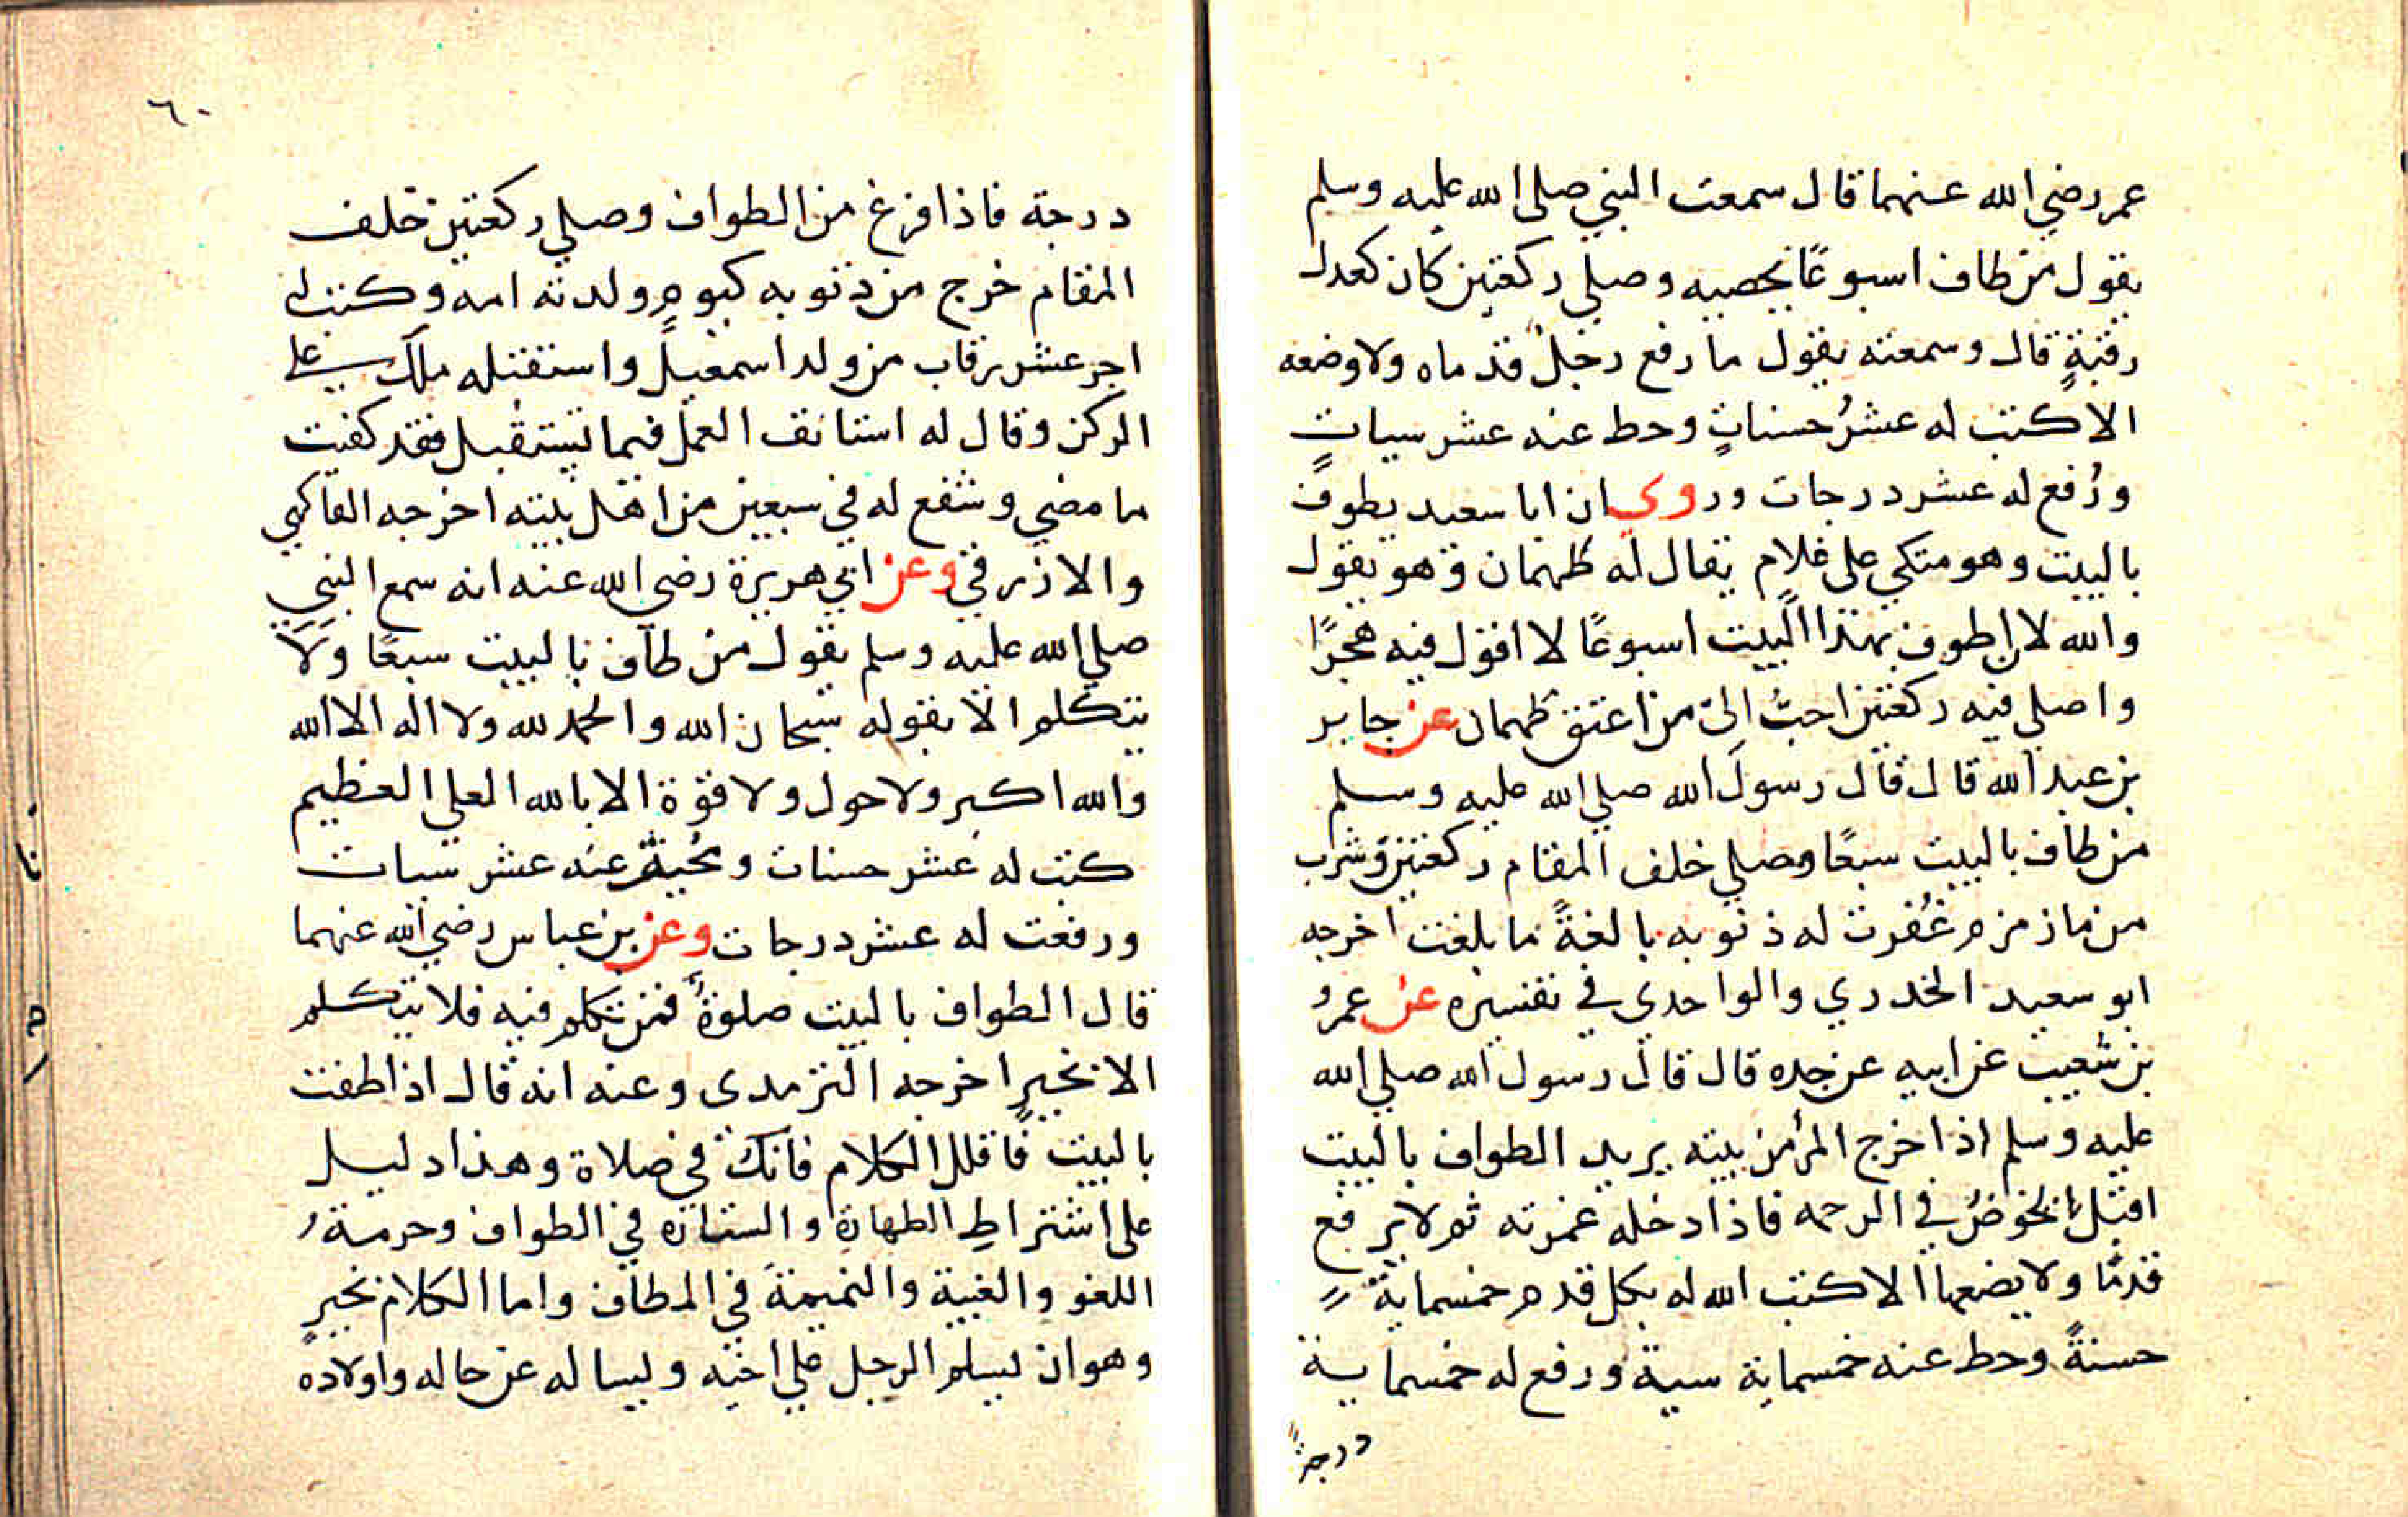 عمر رضي الله عنهما قال سمعت النبي صلى الله عليه وسلم
يقول من طاف اسبوعًا يحصيه وصلى ركعتين كان كعدل
رقبةٍ قال وسمعته يقول ما رفع رجلٌ قدماه ولا وضعه
الا كتب له عشرُ حسناتٍ وحط عنه عشر سيات
ورُفع له عشر درجات وروي ان ابا سعيد يطوف
بالبيت وهو متكي على غلام يقال له طهمان وهو يقول
والله لان اطوف بهذا البيت اسبوعًا لا اقول فيه هجرًا
واصلي فيه ركعتين احبُّ اليّ من اعتق طهمان عن جابر
بن عبد الله قال قال رسول الله صلي الله عليه وسلم
من طاف بالبيت سبعًا وصلي خلف المقام ركعتين وشرب
من ماز مزم غُفرت له ذنوبه بالغةً ما بلغت اخرجه
ابو سعيد الخدري والواحدي في تفسيره عن عمرو
بن شعيب عن ابيه عن جده قال قال رسول الله صلي الله
عليه وسلم اذا خرج المرأ من بيته يريد الطواف بالبيت
اقبل يخوضُ في الرحمه فاذا دخله غمرته ثم لا يرفع
قدمًا ولا يضعها الا كتب الله له بكل قدم خمسماية
حسنةً وحط عنه خمسماية سية ورفع له خمسماية
درجةً
٦٠
درجة فاذا فرغ من الطواف وصلي ركعتين خلف
المقام خرج من ذنوبه كيوم ولدته امه وكتب له
اجر عشر رقاب من ولد اسمعيل واستقبله ملك على
الركن وقال له استانف العمل فيما تستقبل فقد كفيت
ما مضي وشفع له في سبعين من اهل بيته اخرجه الفاكهي
والازرقي وعن ابي هريرة رضي الله عنه انه سمع النبي
صلي الله عليه وسلم يقول من طاف بالبيت سبعًا ولا
يتكلم الا بقوله سبحان الله والحمد لله ولا اله الا الله
والله اكبر ولا حول ولا قوة الا بالله العلي العظيم
كتب له عشر حسنات ومحيت عنه عشر سيات
ورفعت له عشر درجات وعن بن عباس رضي الله عنهما
قال الطواف بالبيت صلوةٌ فمن تكلم فيه فلا يتكلم
الا بخيرٍ اخرجه الترمدى وعنه انه قال اذا طفت
بالبيت فاقلل الكلام فانك في صلاة وهذا دليل
على اشتراط الطهارة والستارة في الطواف وحرمة
اللغو والغيبة والنميمة في المطاف واما الكلام بخيرٍ
وهو ان يسلم الرجل علي اخيه ويساله عن حاله واولاده